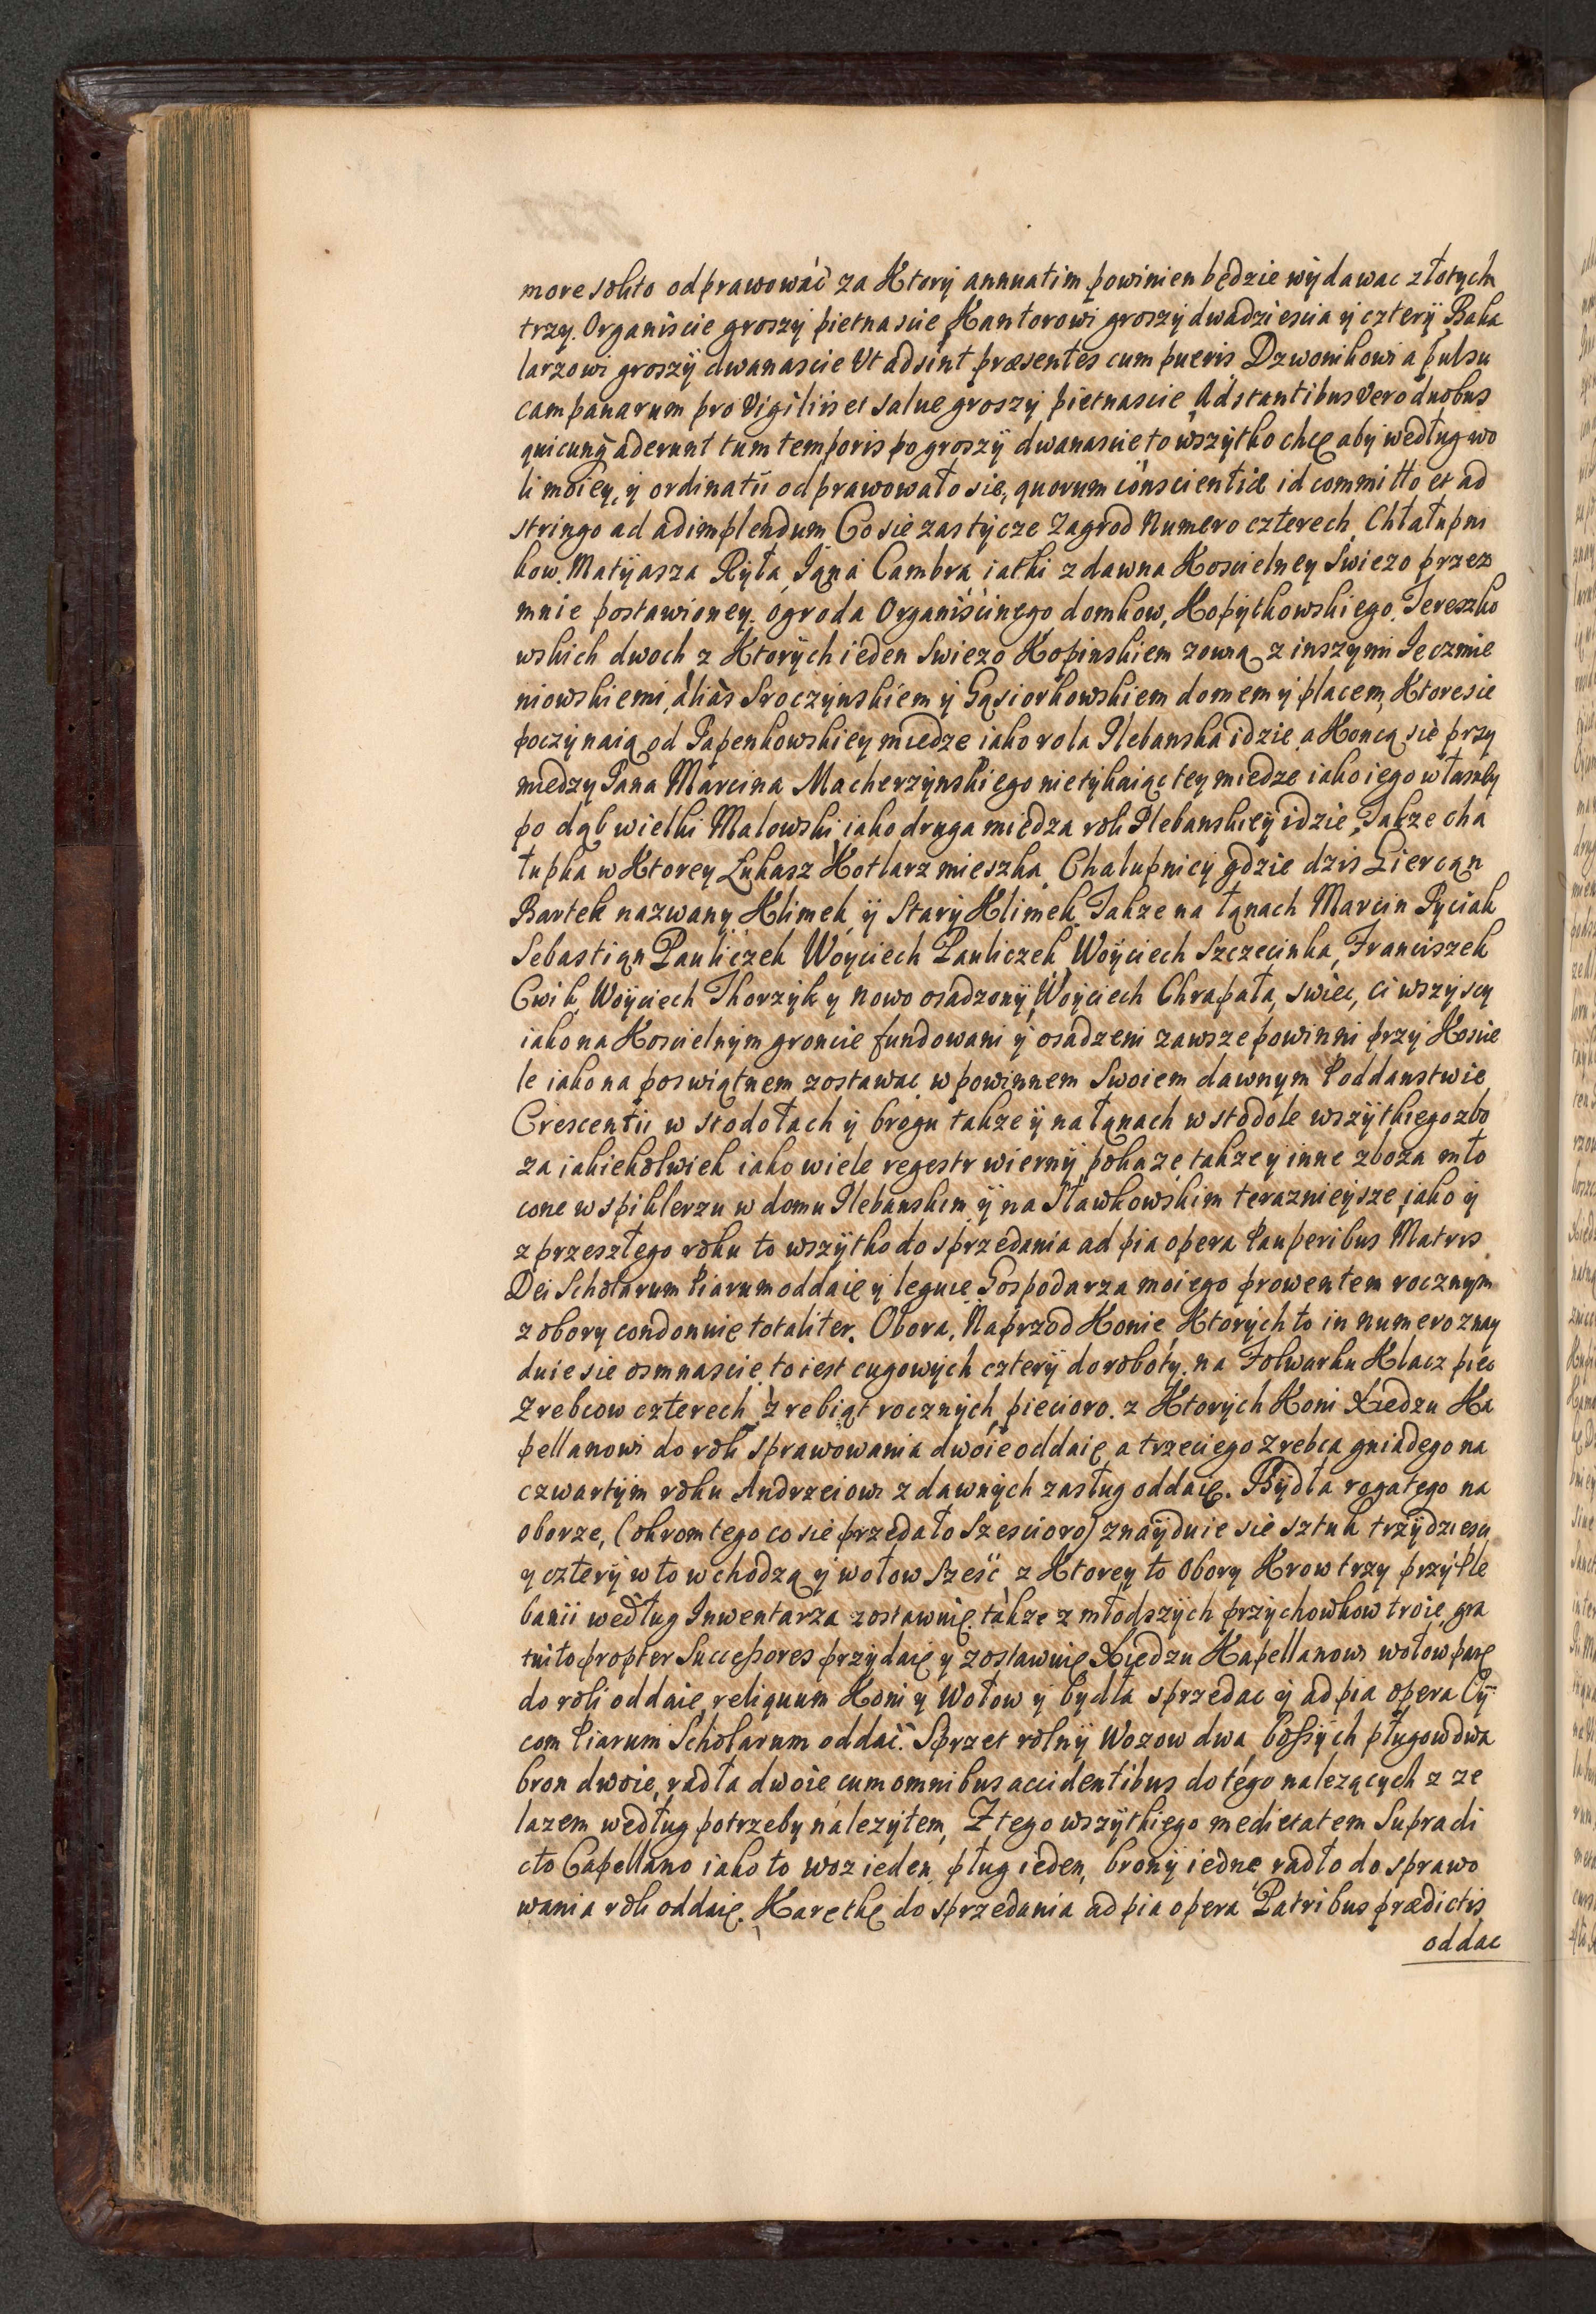 more solito odprawować za Ktory annuatim powinien będzie wydawac złotych
trzy. Organiscie groszy pietnascie Kantorowi groszy dwadziescia y cztery Baka
larzowi groszy dwanascie Ut adsint præsentes cum pueris Dzwonikowi a pulsu
campanarum pro Vigiliis et salue groszy pietnascie Adstantibus Vero duobus
quicunq aderunt tum temporis po groszy dwanascie to wszytko chcę aby według wo
li moiey, y ordinatii odprawowało sie, quorum conscientiæ id committo et ad
stringo ad adimplendum Co sie zastycze Zagrod Numero czterech, Chłałupni
kow. Matyasza Ryła, Jąna Cambra, iatki z dawna Koscielney Swiezo przez
mnie postawioney. ogroda Organiscinego domkow, Kopytkowskiego. Jereszko
wskich dwoch z Ktorych ieden Swiezo Kopinskiem zowną z inszymi Jeczmie
niowskiemi, alias Sroczynskiem y Gąsiorkowskiem domem y placem, Ktore sie
poczynaią od Papenkowskiey miedze iako rola Plebanska idzie, a Koncą sie przy
miedzy Pana Marcina Macherzynskiego nie tykaiąc tey miedze iako iego własney
po dąb wielki Malowski iako druga miedza roli Plebanskiey idzie, Takze cha
łupka w Ktorey Łukasz Kotlarz mieszka, Chalupnicy gdzie dzis Ziercąn
Bartek nazwany Klimek y Stary Klimek. Takze na łąnach Marcin Pyciak
Sebastiąn Pauliczek Woyciech Pauliczek, Woyciech Szczecinka, Franciszek
Cwik, Woyciech Thorzyk y nowo osadzony, Woyciech Chrapała, swiec, ci wszyscy
iako na Koscielnym groncie fundowani y osadzeni zawsze powinni przy Koscie
le iako na poswiątnem zostawac w powinnem Swoiem dawnym Poddanstwie
Crescentii w stodołach y brogu takze y na łąnach w stodole wszytkiego zbo
za iakiekolwiek iako wiele regestr wierny pokaze takze y inne zboza mło
cone w spiklerzu w domu Plebanskim y na Sławkowskim terazniejsze, iako y
z przeszłego roku to wszytko do sprzedania ad pia opera Pauperibus Matris
Dei Scholarum Piarum oddaię y leguię Gospodarza moiego prowentem rocznym
z obory condonuię totaliter. Obora, Naprzod Konie, Ktorych to in numero znay
duie sie osmnascie to iest cugowych cztery do roboty. na Folwarku Klacz piec
Zrebcow czterech, zrebiąt rocznych piecioro. z Ktorych Koni Xiedzu Ka
pellanowi do roli sprawowania dwoie oddaię, a trzeciego zrebca gniadego na
czwartym roku Andrzeiowi z dawnych zasług oddaię. Bydła rogatego na
oborze, (okrom tego co sie przedało Szescioro) znayduie sie sztuk trzydziesci
y cztery w to wchodzą y wołow Sześć, z Ktorey to Obory Krow trzy przy Ple
banii według Inwentarza zostawuię. takze z młodszych przychowkow troie, gra
tuito propter Successores przydaię y zostawuię Xiędzu Kapellanowi wołow parę
do roli oddaię, reliquum Koni y Wołow y bydła sprzedac y ad pia opera Oy
com Piarum Scholarum oddać. Sprzet rolny Wozow dwa bossych pługow dwa
bron dwoie, radła dwoie, cum omnibus accidentibus do tego nalezących z ze
lazem według potrzeby nalezytem, Z tego wszytkiego medietatem Supradi
cto Capellano iako to woz ieden, pług ieden, brony iedne radło do sprawo
wania roli oddaię. Karetkę do sprzedania ad pia opera Patribus prædictis
oddac